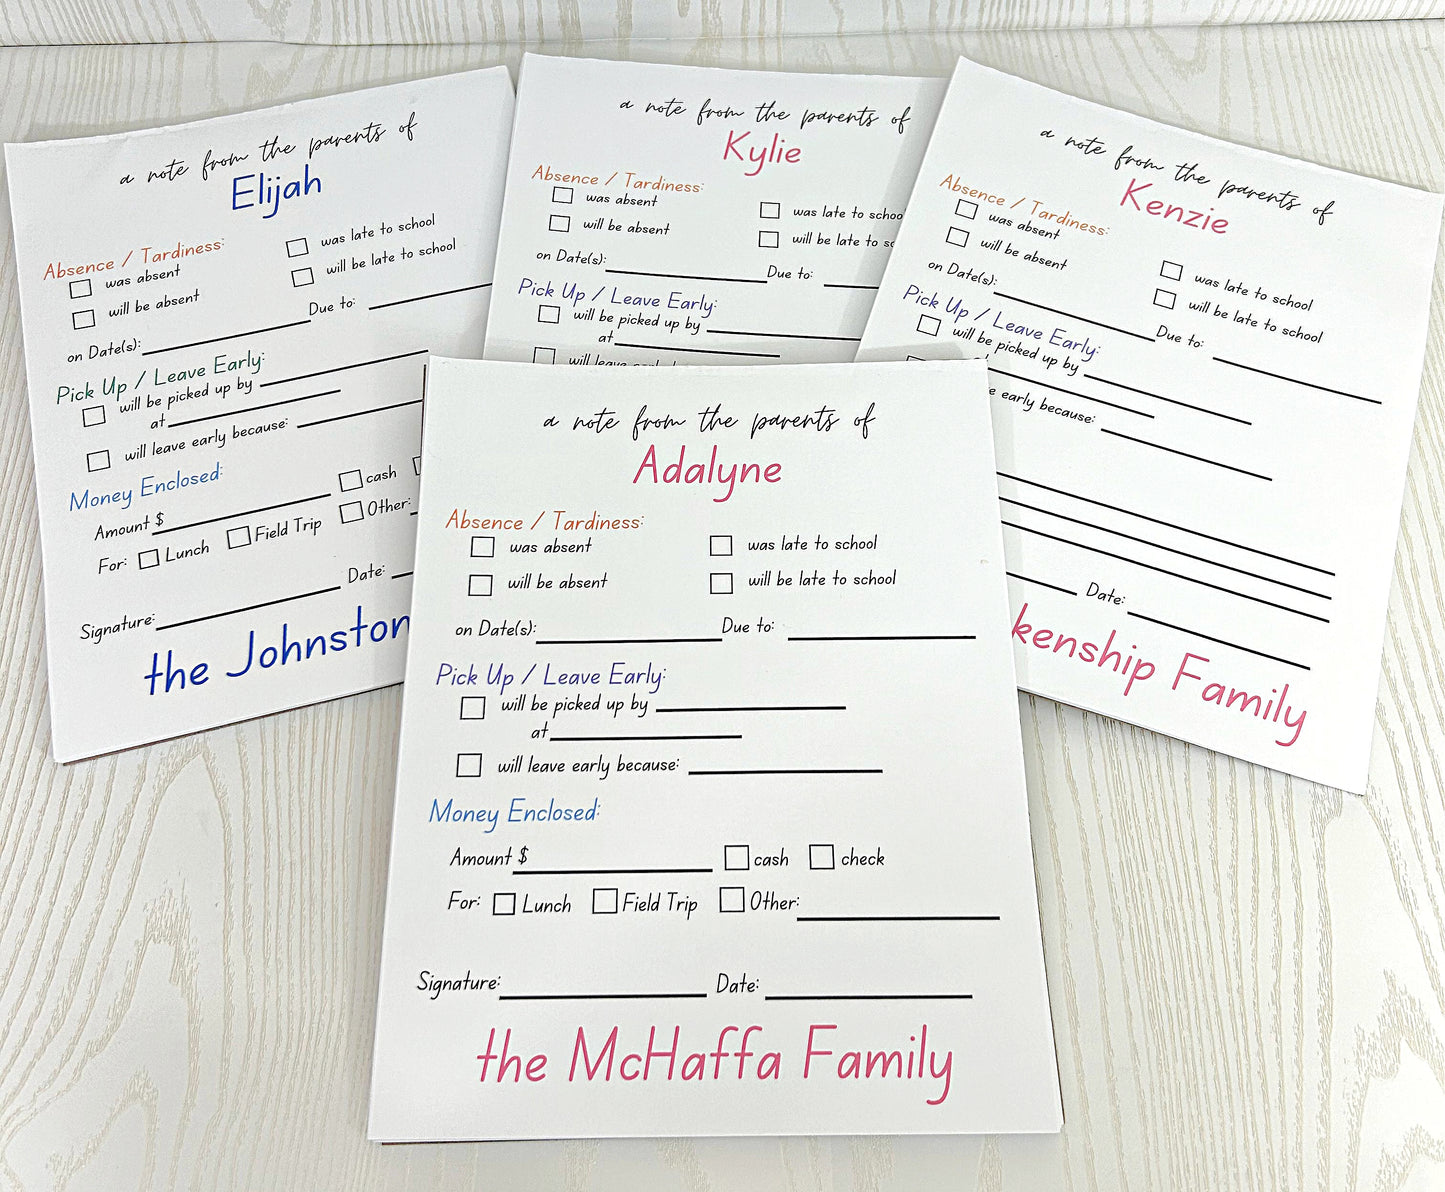 a note from the parents of
Elijah
Absence / Tardiness:
was absent
was late to school
will be absent
will be late to school
on Date(s):
Due to:
Pick Up / Leave Early:
will be picked up by
at
will leave early because:
Money Enclosed:
Amount $
cash
For:
Lunch
Field Trip
Other:
Signature:
Date:
the Johnston
a note from the parents of
Kylie
Absence / Tardiness:
was absent
was late to schoo
will be absent
will be late to sc
on Date(s):
Due to:
Pick Up / Leave Early:
will be picked up by
at
will leave early
a note from the parents of
Kenzie
Absence / Tardiness:
was absent
was late to school
will be absent
will be late to school
on Date(s):
Due to:
Pick Up / Leave Early:
will be picked up by
e early because:
Date:
kenship Family
a note from the parents of
Adalyne
Absence / Tardiness:
was absent
was late to school
will be absent
will be late to school
on Date(s):
Due to:
Pick Up / Leave Early:
will be picked up by
at
will leave early because:
Money Enclosed:
Amount $
cash
check
For:
Lunch
Field Trip
Other:
Signature:
Date:
the McHaffa Family